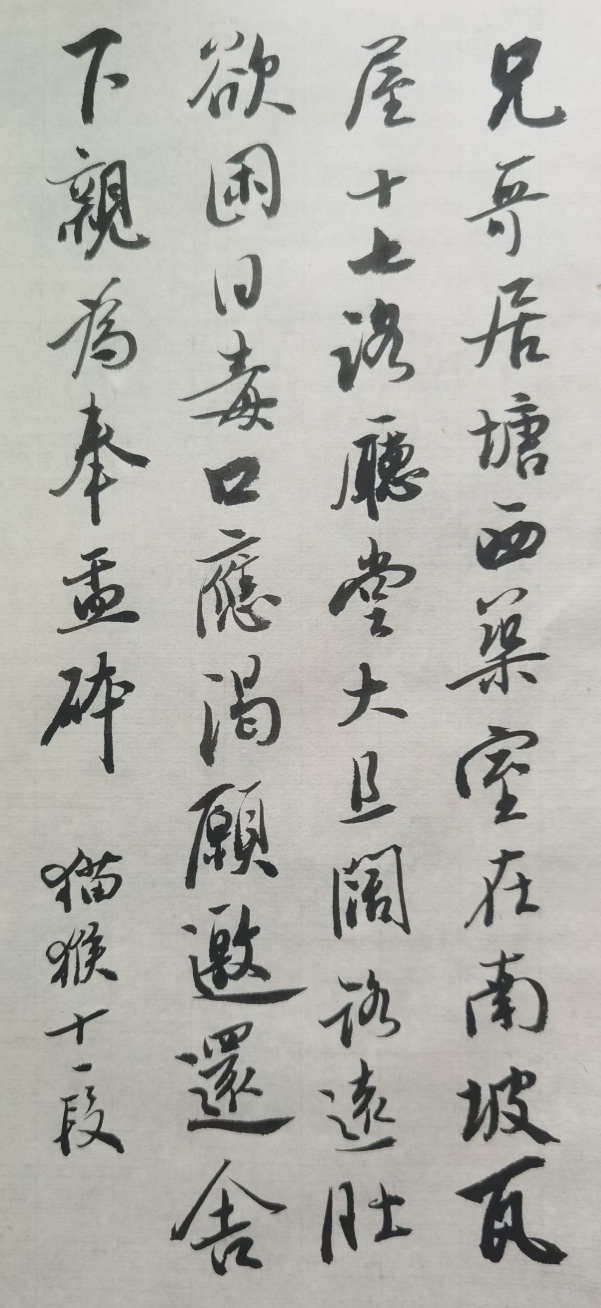 兄哥居塘西築室在南坡瓦
屋十七路廳堂大且闊路遠肚
欲困日毒口應渴願邀還舍
下親為奉盂砵
猫猴十一段